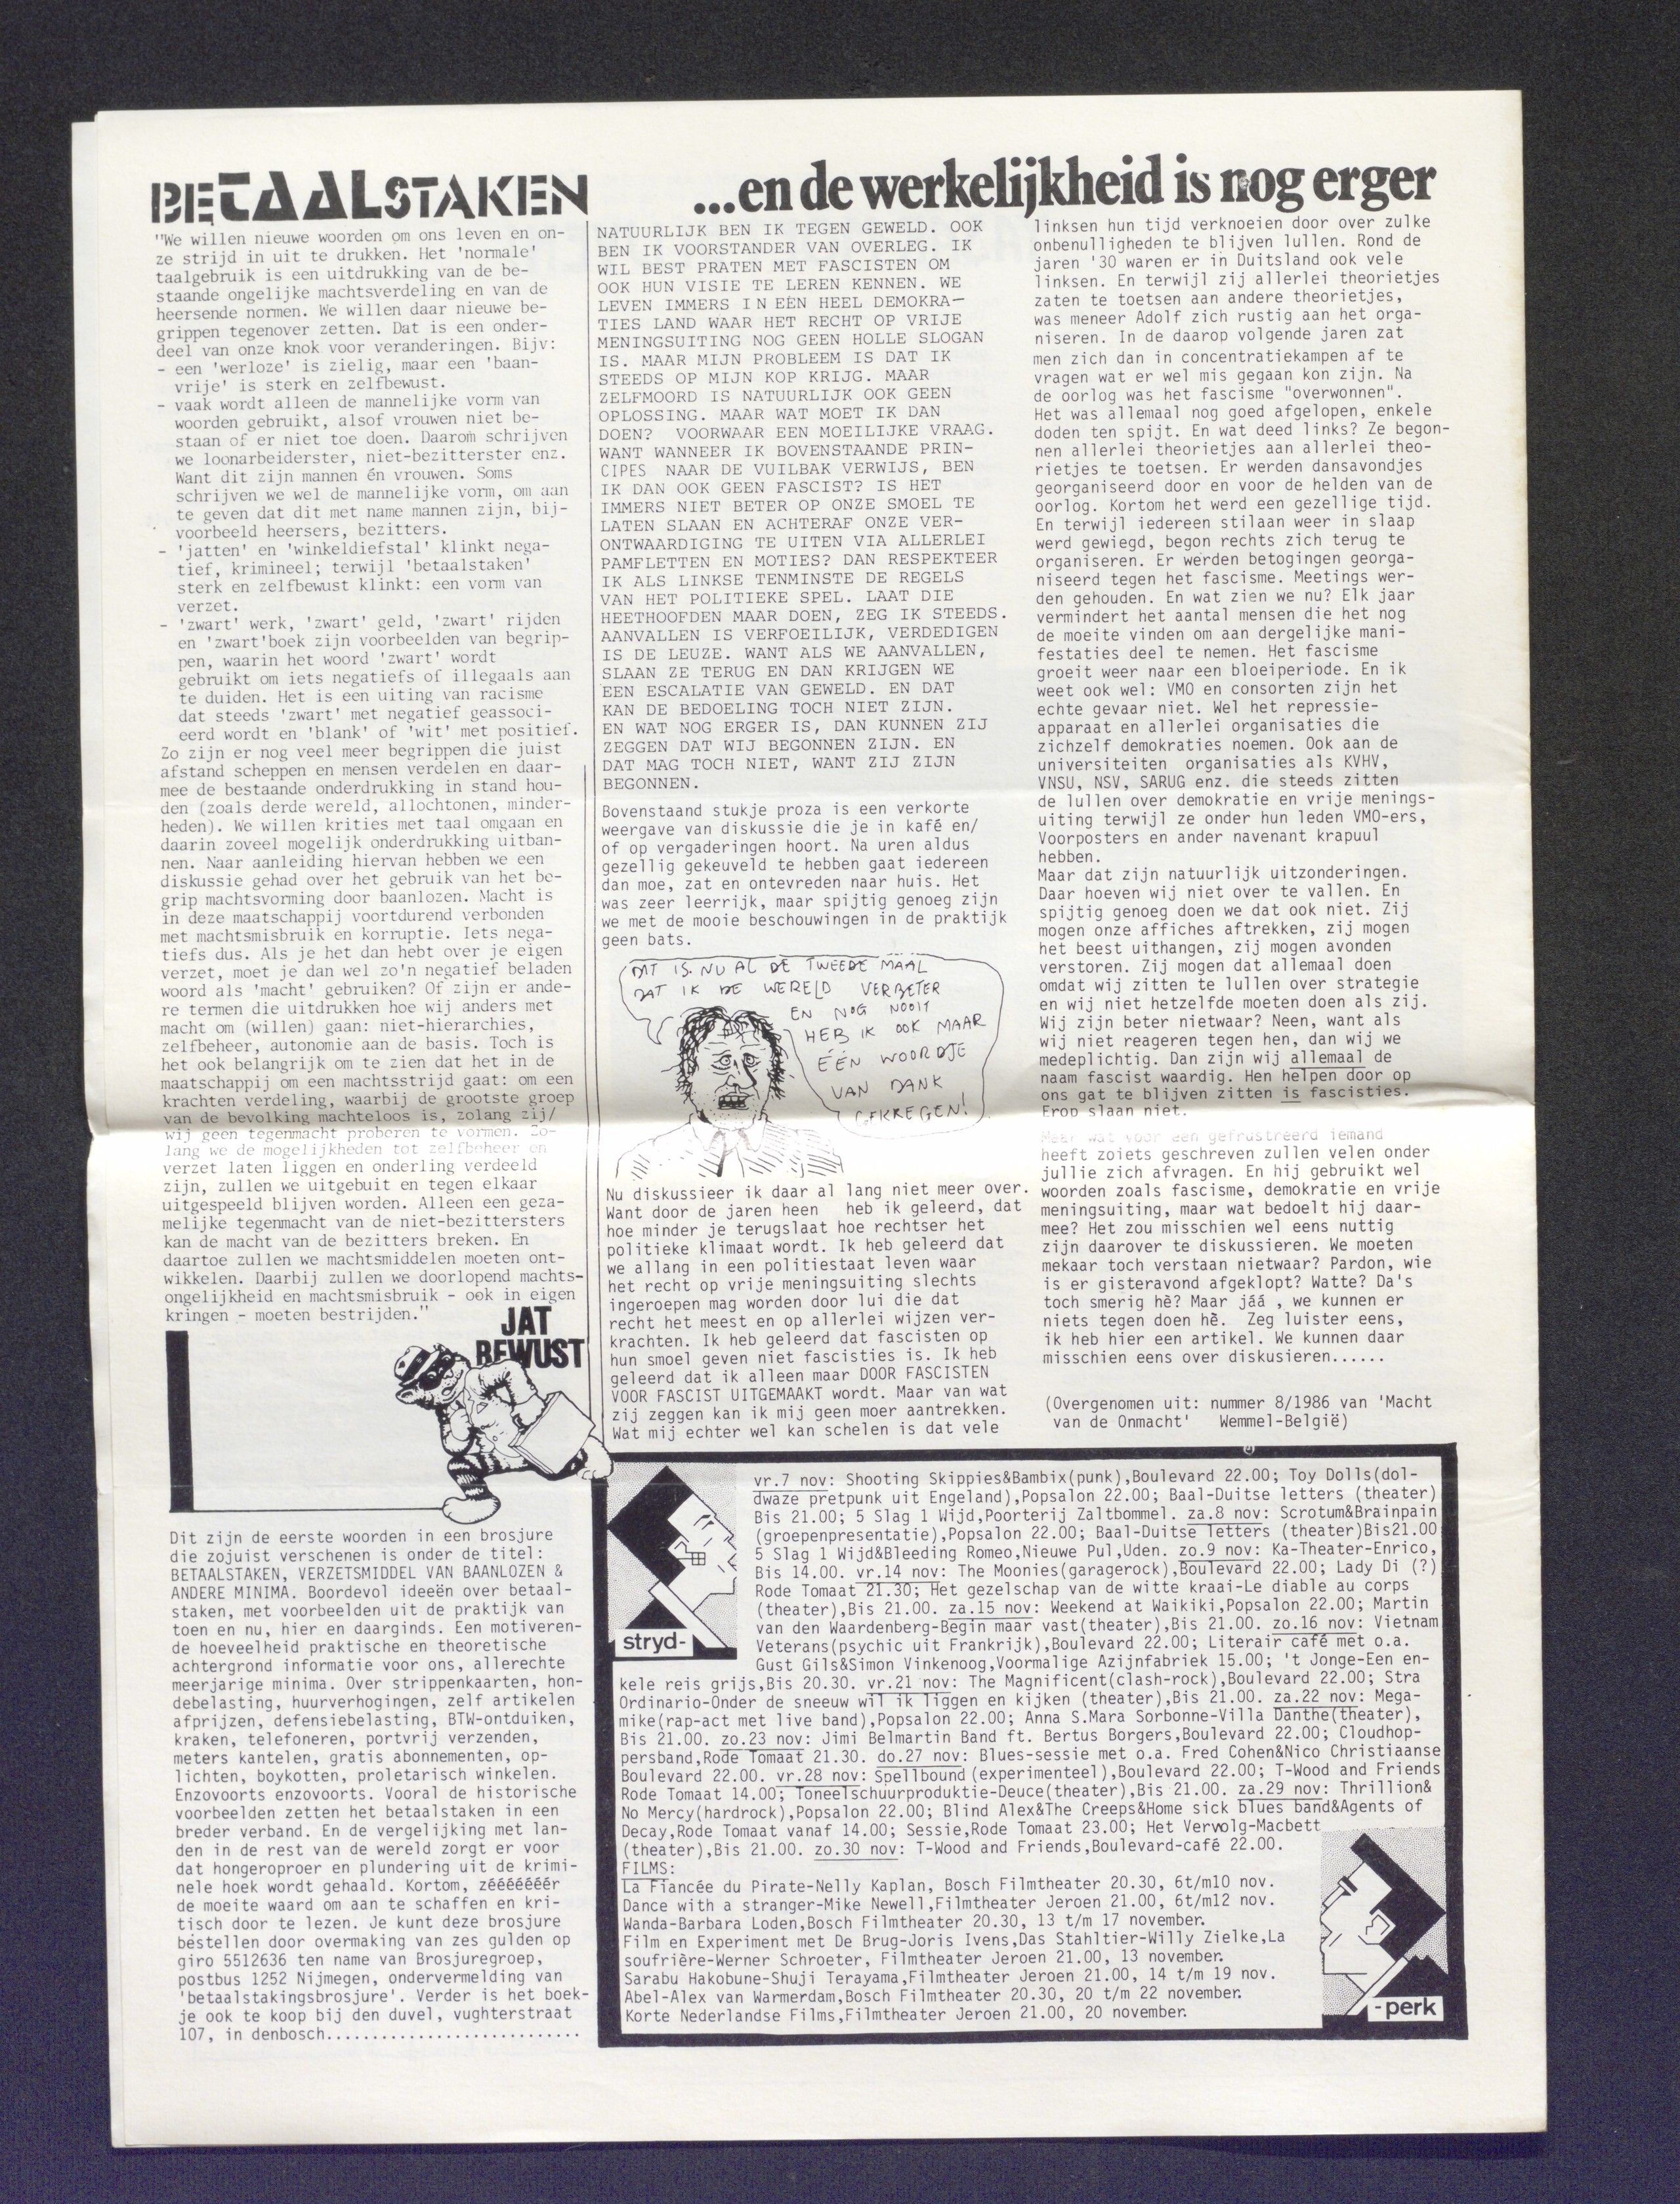 BETAALSTAKEN
"We willen nieuwe woorden om ons leven en on-
ze strijd in uit te drukken. Het 'normale'
taalgebruik is een uitdrukking van de be-
staande ongelijke machtsverdeling en van de
heersende normen. We willen daar nieuwe be-
grippen tegenover zetten. Dat is een onder-
deel van onze knok voor veranderingen. Bijv:
- een 'werloze' is zielig, maar een 'baan-
vrije' is sterk en zelfbewust.
- vaak wordt alleen de mannelijke vorm van
woorden gebruikt, alsof vrouwen niet be-
staan of er niet toe doen. Daarom schrijven
we loonarbeiderster, niet-bezitterster enz.
Want dit zijn mannen én vrouwen. Soms
schrijven we wel de mannelijke vorm, om aan
te geven dat dit met name mannen zijn, bij-
voorbeeld heersers, bezitters.
- 'jatten' en 'winkeldiefstal' klinkt nega-
tief, krimineel; terwijl 'betaalstaken'
sterk en zelfbewust klinkt: een vorm van
verzet.
- 'zwart' werk, 'zwart' geld, 'zwart' rijden
en 'zwart'boek zijn voorbeelden van begrip-
pen, waarin het woord 'zwart' wordt
gebruikt om iets negatiefs of illegaals aan
te duiden. Het is een uiting van racisme
dat steeds 'zwart' met negatief geassoci-
eerd wordt en 'blank' of 'wit' met positief.
Zo zijn er nog veel meer begrippen die juist
afstand scheppen en mensen verdelen en daar-
mee de bestaande onderdrukking in stand hou-
den (zoals derde wereld, allochtonen, minder-
heden). We willen krities met taal omgaan en
daarin zoveel mogelijk onderdrukking uitban-
nen. Naar aanleiding hiervan hebben we een
diskussie gehad over het gebruik van het be-
grip machtsvorming door baanlozen. Macht is
in deze maatschappij voortdurend verbonden
met machtsmisbruik en korruptie. Iets nega-
tiefs dus. Als je het dan hebt over je eigen
verzet, moet je dan wel zo'n negatief beladen
woord als 'macht' gebruiken? Of zijn er ande-
re termen die uitdrukken hoe wij anders met
macht om (willen) gaan: niet-hierarchies,
zelfbeheer, autonomie aan de basis. Toch is
het ook belangrijk om te zien dat het in de
maatschappij om een machtsstrijd gaat: om een
krachten verdeling, waarbij de grootste groep
van de bevolking machteloos is, zolang zij/
wij geen tegenmacht proberen te vormen. Zo-
lang we de mogelijkheden tot zelfbeheer en
verzet laten liggen en onderling verdeeld
zijn, zullen we uitgebuit en tegen elkaar
uitgespeeld blijven worden. Alleen een geza-
melijke tegenmacht van de niet-bezittersters
kan de macht van de bezitters breken. En
daartoe zullen we machtsmiddelen moeten ont-
wikkelen. Daarbij zullen we doorlopend machts-
ongelijkheid en machtsmisbruik - ook in eigen
kringen - moeten bestrijden."
JAT
BEWUST
Dit zijn de eerste woorden in een brosjure
die zojuist verschenen is onder de titel:
BETAALSTAKEN, VERZETSMIDDEL VAN BAANLOZEN &
ANDERE MINIMA. Boordevol ideeën over betaal-
staken, met voorbeelden uit de praktijk van
toen en nu, hier en daarginds. Een motiveren-
de hoeveelheid praktische en theoretische
achtergrond informatie voor ons, allerechte
meerjarige minima. Over strippenkaarten, hon-
debelasting, huurverhogingen, zelf artikelen
afprijzen, defensiebelasting, BTW-ontduiken,
kraken, telefoneren, portvrij verzenden,
meters kantelen, gratis abonnementen, op-
lichten, boykotten, proletarisch winkelen.
Enzovoorts enzovoorts. Vooral de historische
voorbeelden zetten het betaalstaken in een
breder verband. En de vergelijking met lan-
den in de rest van de wereld zorgt er voor
dat hongeroproer en plundering uit de krimi-
nele hoek wordt gehaald. Kortom, zééééééér
de moeite waard om aan te schaffen en kri-
tisch door te lezen. Je kunt deze brosjure
bestellen door overmaking van zes gulden op
giro 5512636 ten name van Brosjuregroep,
postbus 1252 Nijmegen, ondervermelding van
'betaalstakingsbrosjure'. Verder is het boek-
je ook te koop bij den duvel, vughterstraat
107, in denbosch............................
...en de werkelijkheid is nog erger
NATUURLIJK BEN IK TEGEN GEWELD. OOK
BEN IK VOORSTANDER VAN OVERLEG. IK
WIL BEST PRATEN MET FASCISTEN OM
OOK HUN VISIE TE LEREN KENNEN. WE
LEVEN IMMERS IN EEN HEEL DEMOKRA-
TIES LAND WAAR HET RECHT OP VRIJE
MENINGSUITING NOG GEEN HOLLE SLOGAN
IS. MAAR MIJN PROBLEEM IS DAT IK
STEEDS OP MIJN KOP KRIJG. MAAR
ZELFMOORD IS NATUURLIJK OOK GEEN
OPLOSSING. MAAR WAT MOET IK DAN
DOEN? VOORWAAR EEN MOEILIJKE VRAAG.
WANT WANNEER IK BOVENSTAANDE PRIN-
CIPES NAAR DE VUILBAK VERWIJS, BEN
IK DAN OOK GEEN FASCIST? IS HET
IMMERS NIET BETER OP ONZE SMOEL TE
LATEN SLAAN EN ACHTERAF ONZE VER-
ONTWAARDIGING TE UITEN VIA ALLERLEI
PAMFLETTEN EN MOTIES? DAN RESPEKTEER
IK ALS LINKSE TENMINSTE DE REGELS
VAN HET POLITIEKE SPEL. LAAT DIE
HEETHOOFDEN MAAR DOEN, ZEG IK STEEDS.
AANVALLEN IS VERFOEILIJK, VERDEDIGEN
IS DE LEUZE. WANT ALS WE AANVALLEN,
SLAAN ZE TERUG EN DAN KRIJGEN WE
EEN ESCALATIE VAN GEWELD. EN DAT
KAN DE BEDOELING TOCH NIET ZIJN.
EN WAT NOG ERGER IS, DAN KUNNEN ZIJ
ZEGGEN DAT WIJ BEGONNEN ZIJN. EN
DAT MAG TOCH NIET, WANT ZIJ ZIJN
BEGONNEN.
Bovenstaand stukje proza is een verkorte
weergave van diskussie die je in kafé en/
of op vergaderingen hoort. Na uren aldus
gezellig gekeuveld te hebben gaat iedereen
dan moe, zat en ontevreden naar huis. Het
was zeer leerrijk, maar spijtig genoeg zijn
we met de mooie beschouwingen in de praktijk
geen bats.
DIT IS NU AL DE TWEEDE MAAL
DAT IK DE WERELD VERBETER
EN NOG NOOIT
HEB IK OOK MAAR
ÉÉN WOORDJE
VAN DANK
GEKREGEN!
Nu diskussieer ik daar al lang niet meer over.
Want door de jaren heen heb ik geleerd, dat
hoe minder je terugslaat hoe rechtser het
politieke klimaat wordt. Ik heb geleerd dat
we allang in een politiestaat leven waar
het recht op vrije meningsuiting slechts
ingeroepen mag worden door lui die dat
recht het meest en op allerlei wijzen ver-
krachten. Ik heb geleerd dat fascisten op
hun smoel geven niet fascisties is. Ik heb
geleerd dat ik alleen maar DOOR FASCISTEN
VOOR FASCIST UITGEMAAKT wordt. Maar van wat
zij zeggen kan ik mij geen moer aantrekken.
Wat mij echter wel kan schelen is dat vele
linksen hun tijd verknoeien door over zulke
onbenulligheden te blijven lullen. Rond de
jaren '30 waren er in Duitsland ook vele
linksen. En terwijl zij allerlei theorietjes
zaten te toetsen aan andere theorietjes,
was meneer Adolf zich rustig aan het orga-
niseren. In de daarop volgende jaren zat
men zich dan in concentratiekampen af te
vragen wat er wel mis gegaan kon zijn. Na
de oorlog was het fascisme "overwonnen".
Het was allemaal nog goed afgelopen, enkele
doden ten spijt. En wat deed links? Ze begon-
nen allerlei theorietjes aan allerlei theo-
rietjes te toetsen. Er werden dansavondjes
georganiseerd door en voor de helden van de
oorlog. Kortom het werd een gezellige tijd.
En terwijl iedereen stilaan weer in slaap
werd gewiegd, begon rechts zich terug te
organiseren. Er werden betogingen georga-
niseerd tegen het fascisme. Meetings wer-
den gehouden. En wat zien we nu? Elk jaar
vermindert het aantal mensen die het nog
de moeite vinden om aan dergelijke mani-
festaties deel te nemen. Het fascisme
groeit weer naar een bloeiperiode. En ik
weet ook wel: VMO en consorten zijn het
echte gevaar niet. Wel het repressie-
apparaat en allerlei organisaties die
zichzelf demokraties noemen. Ook aan de
universiteiten organisaties als KVHV,
VNSU, NSV, SARUG enz. die steeds zitten
de lullen over demokratie en vrije menings-
uiting terwijl ze onder hun leden VMO-ers,
Voorposters en ander navenant krapuul
hebben.
Maar dat zijn natuurlijk uitzonderingen.
Daar hoeven wij niet over te vallen. En
spijtig genoeg doen we dat ook niet. Zij
mogen onze affiches aftrekken, zij mogen
het beest uithangen, zij mogen avonden
verstoren. Zij mogen dat allemaal doen
omdat wij zitten te lullen over strategie
en wij niet hetzelfde moeten doen als zij.
Wij zijn beter nietwaar? Neen, want als
wij niet reageren tegen hen, dan wij we
medeplichtig. Dan zijn wij allemaal de
naam fascist waardig. Hen helpen door op
ons gat te blijven zitten is fascisties.
Erop slaan niet.
Maar wat voor een gefrustreerd iemand
heeft zoiets geschreven zullen velen onder
jullie zich afvragen. En hij gebruikt wel
woorden zoals fascisme, demokratie en vrije
meningsuiting, maar wat bedoelt hij daar-
mee? Het zou misschien wel eens nuttig
zijn daarover te diskussieren. We moeten
mekaar toch verstaan nietwaar? Pardon, wie
is er gisteravond afgeklopt? Watte? Da's
toch smerig hè? Maar jáá , we kunnen er
niets tegen doen hè. Zeg luister eens,
ik heb hier een artikel. We kunnen daar
misschien eens over diskusieren......
(Overgenomen uit: nummer 8/1986 van 'Macht
van de Onmacht' Wemmel-België)
stryd-
vr.7 nov: Shooting Skippies&Bambix(punk),Boulevard 22.00; Toy Dolls(dol-
dwaze pretpunk uit Engeland),Popsalon 22.00; Baal-Duitse letters (theater)
Bis 21.00; 5 Slag 1 Wijd,Poorterij Zaltbommel. za.8 nov: Scrotum&Brainpain
(groepenpresentatie),Popsalon 22.00; Baal-Duitse letters (theater)Bis21.00
5 Slag 1 Wijd&Bleeding Romeo,Nieuwe Pul,Uden. zo.9 nov: Ka-Theater-Enrico,
Bis 14.00. vr.14 nov: The Moonies(garagerock),Boulevard 22.00; Lady Di (?)
Rode Tomaat 21.30; Het gezelschap van de witte kraai-Le diable au corps
(theater),Bis 21.00. za.15 nov: Weekend at Waikiki,Popsalon 22.00; Martin
van den Waardenberg-Begin maar vast(theater),Bis 21.00. zo.16 nov: Vietnam
Veterans(psychic uit Frankrijk),Boulevard 22.00; Literair café met o.a.
Gust Gils&Simon Vinkenoog,Voormalige Azijnfabriek 15.00; 't Jonge-Een en-
kele reis grijs,Bis 20.30. vr.21 nov: The Magnificent(clash-rock),Boulevard 22.00; Stra
Ordinario-Onder de sneeuw wil ik liggen en kijken (theater),Bis 21.00. za.22 nov: Mega-
mike(rap-act met live band),Popsalon 22.00; Anna S.Mara Sorbonne-Villa Danthe(theater),
Bis 21.00. zo.23 nov: Jimi Belmartin Band ft. Bertus Borgers,Boulevard 22.00; Cloudhop-
persband,Rode Tomaat 21.30. do.27 nov: Blues-sessie met o.a. Fred Cohen&Nico Christiaanse
Boulevard 22.00. vr.28 nov: Spellbound (experimenteel),Boulevard 22.00; T-Wood and Friends
Rode Tomaat 14.00; Toneelschuurproduktie-Deuce(theater),Bis 21.00. za.29 nov: Thrillion&
No Mercy(hardrock),Popsalon 22.00; Blind Alex&The Creeps&Home sick blues band&Agents of
Decay,Rode Tomaat vanaf 14.00; Sessie,Rode Tomaat 23.00; Het Vervolg-Macbett
(theater),Bis 21.00. zo.30 nov: T-Wood and Friends,Boulevard-café 22.00.
FILMS:
La Fiancée du Pirate-Nelly Kaplan, Bosch Filmtheater 20.30, 6t/m10 nov.
Dance with a stranger-Mike Newell,Filmtheater Jeroen 21.00, 6t/m12 nov.
Wanda-Barbara Loden,Bosch Filmtheater 20.30, 13 t/m 17 november.
Film en Experiment met De Brug-Joris Ivens,Das Stahltier-Willy Zielke,La
soufrière-Werner Schroeter, Filmtheater Jeroen 21.00, 13 november.
Sarabu Hakobune-Shuji Terayama,Filmtheater Jeroen 21.00, 14 t/m 19 nov.
Abel-Alex van Warmerdam,Bosch Filmtheater 20.30, 20 t/m 22 november.
Korte Nederlandse Films,Filmtheater Jeroen 21.00, 20 november.
-perk